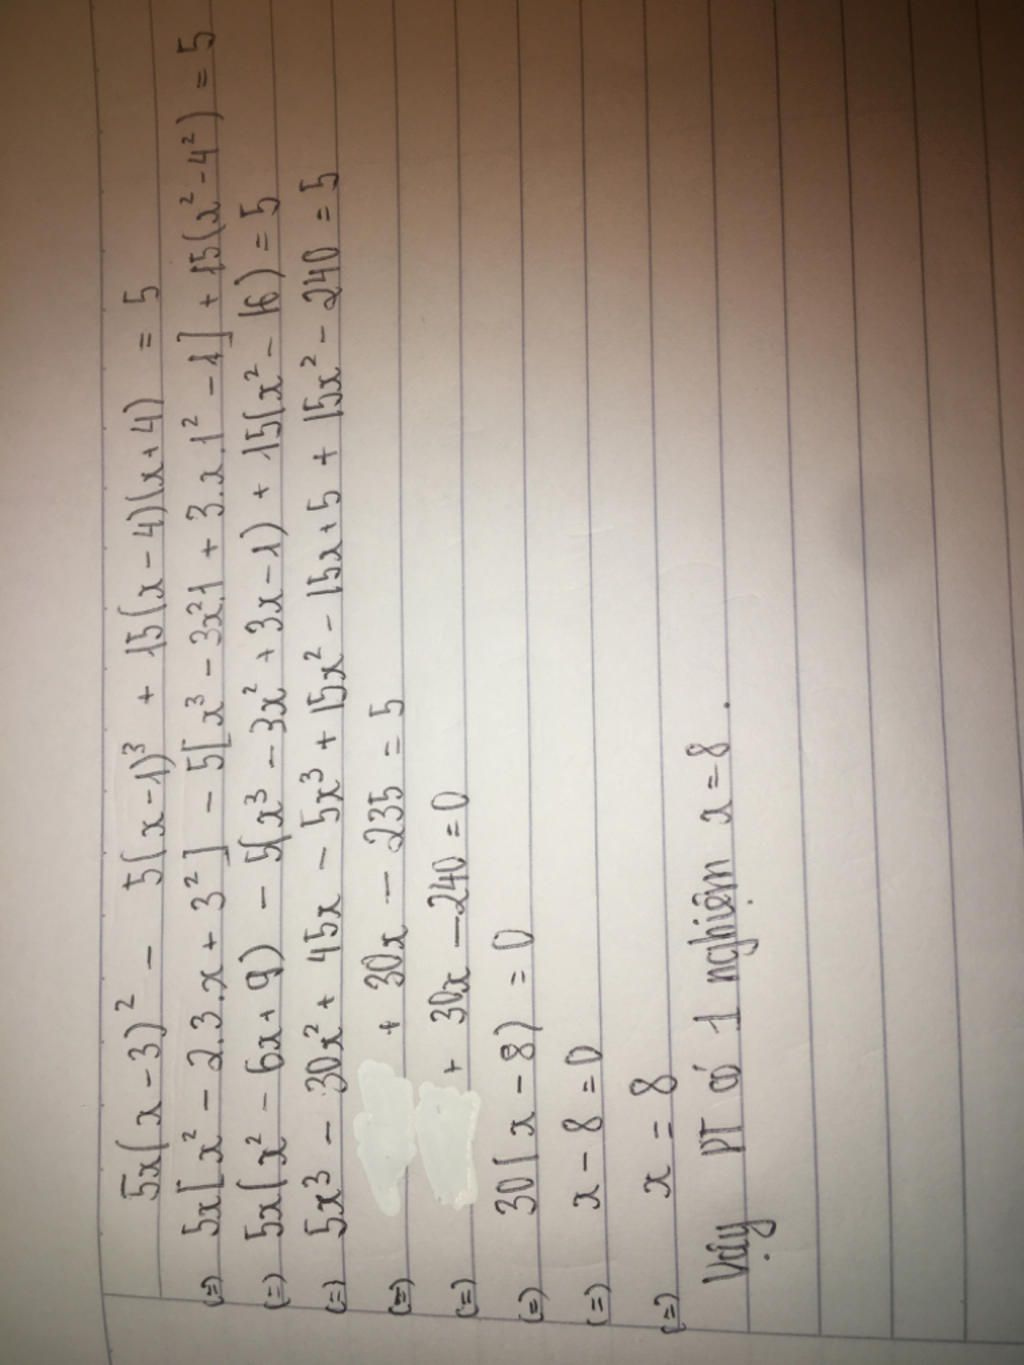 5x(x-3)² - 5(x-1)³ + 15(x-4)(x+4) = 5
(=) 5x[x² - 2.3.x + 3²] - 5[x³ - 3x².1 + 3.x.1² - 1] + 15(x² - 4²) = 5
(=) 5x(x² - 6x + 9) - 5(x³ - 3x² + 3x - 1) + 15(x² - 16) = 5
(=) 5x³ - 30x² + 45x - 5x³ + 15x² - 15x + 5 + 15x² - 240 = 5
(=) + 30x - 235 = 5
(=) + 30x - 240 = 0
(=) 30(x - 8) = 0
(=) x - 8 = 0
(=) x = 8
Vậy PT có 1 nghiệm x = 8.